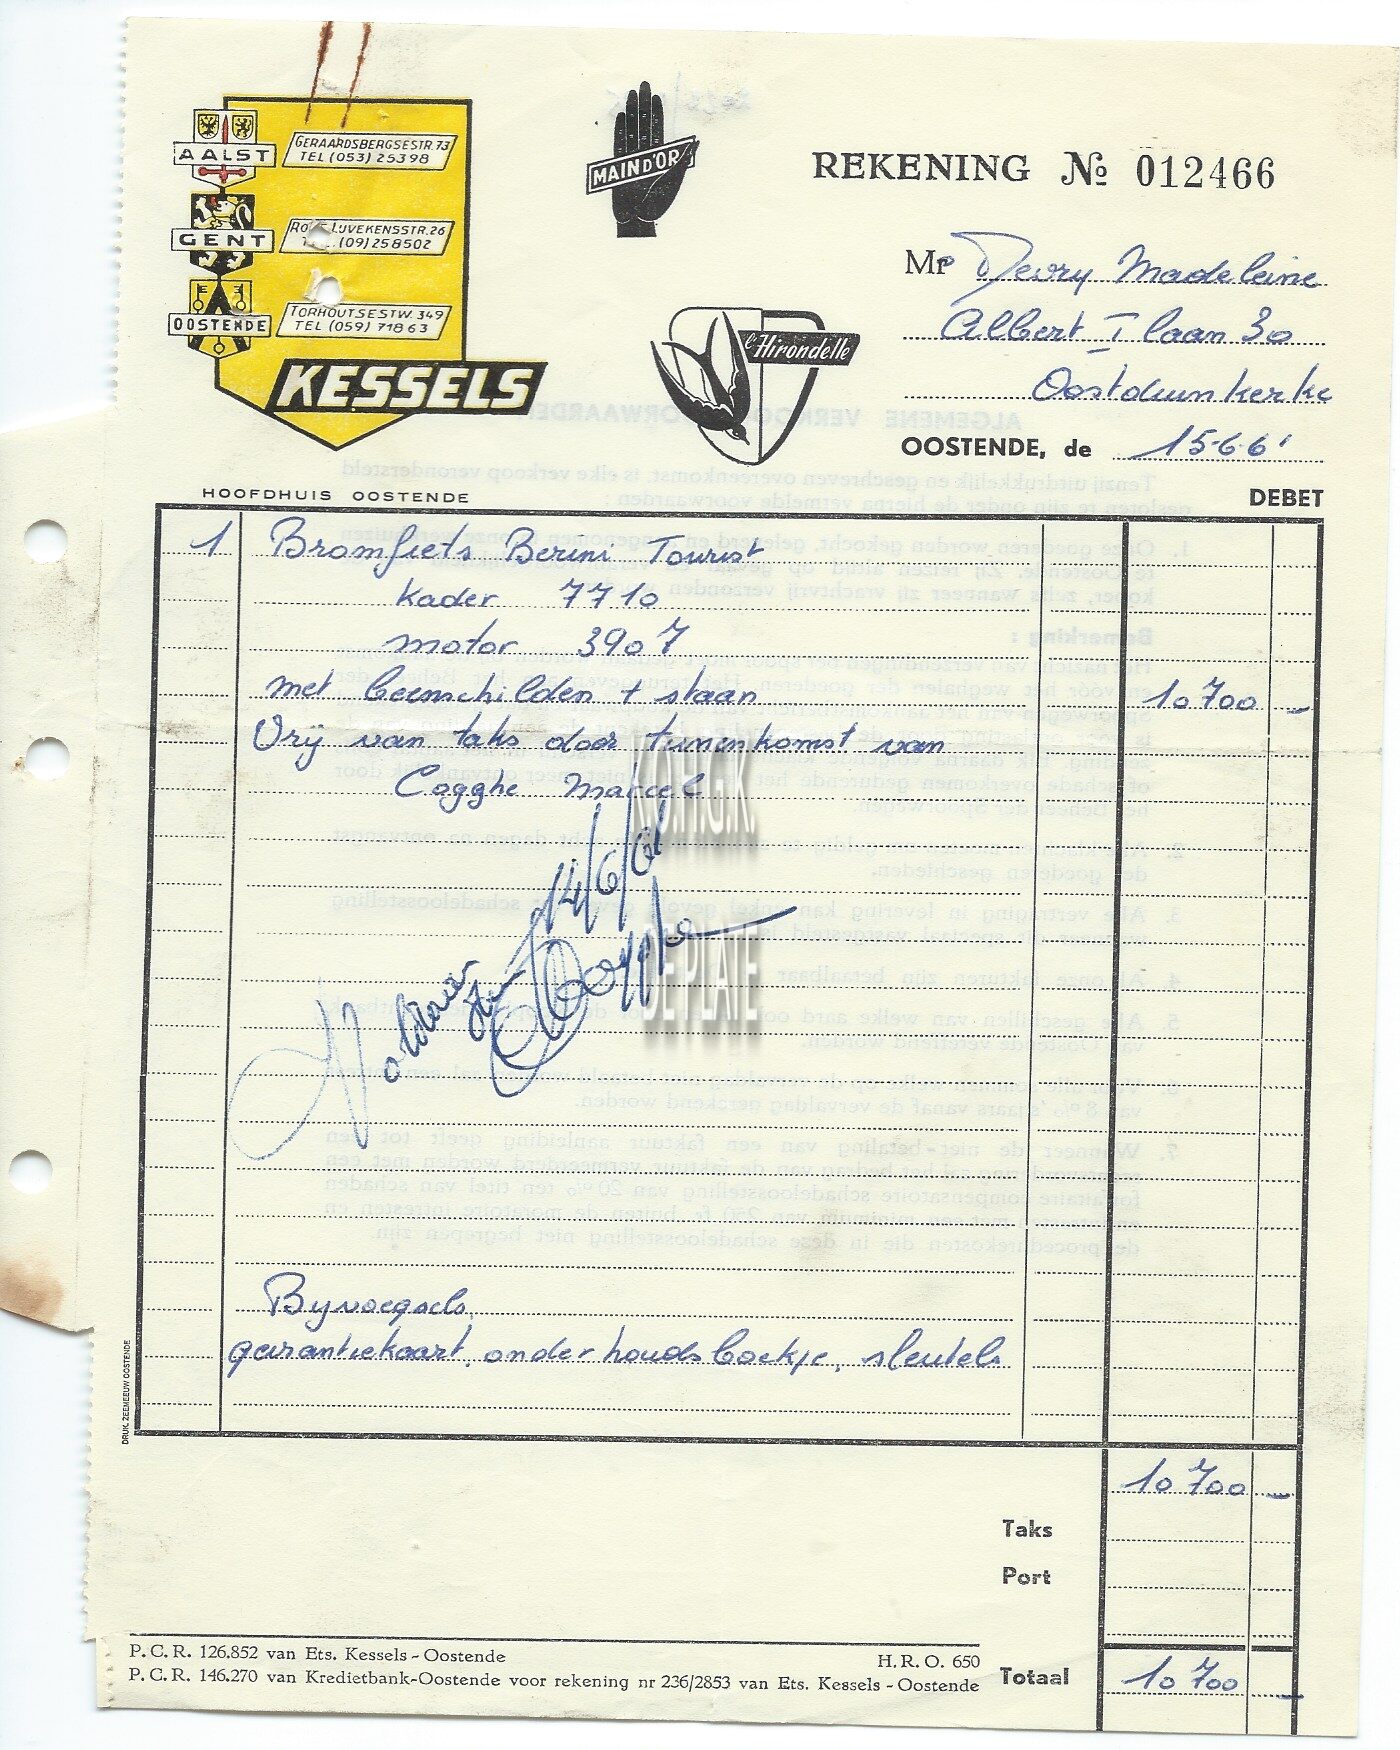 AALST
GERAARDSBERGSESTR. 73
TEL (053) 25398
GENT
LUVEKENSSTR. 26
(09) 258502
OOSTENDE
TORHOUTSESTW. 349
TEL (059) 71863
KESSELS
MAIN D'OR
l'Hirondelle
REKENING № 012466
Mr Devry Madeleine
Albert I laan 30
Oostduinkerke
OOSTENDE, de 15-6-61
HOOFDHUIS OOSTENDE
DEBET
1 Bromfiets Berini Tourist
Kader 7710
motor 3907
met beenschilden + staan 10 700 –
Vrij van taks door van
Cogghe Marcel
14/6/61
K.O.H.G.K.
DE PLATE
Bijvoegsels
garantiekaart, onderhoudsboekje, sleutels
DRUK. ZEEMEEUW OOSTENDE
10 700 –
Taks
Port
P. C. R. 126.852 van Ets. Kessels - Oostende
H. R. O. 650
P. C. R. 146.270 van Kredietbank-Oostende voor rekening nr 236/2853 van Ets. Kessels - Oostende
Totaal 10 700 –